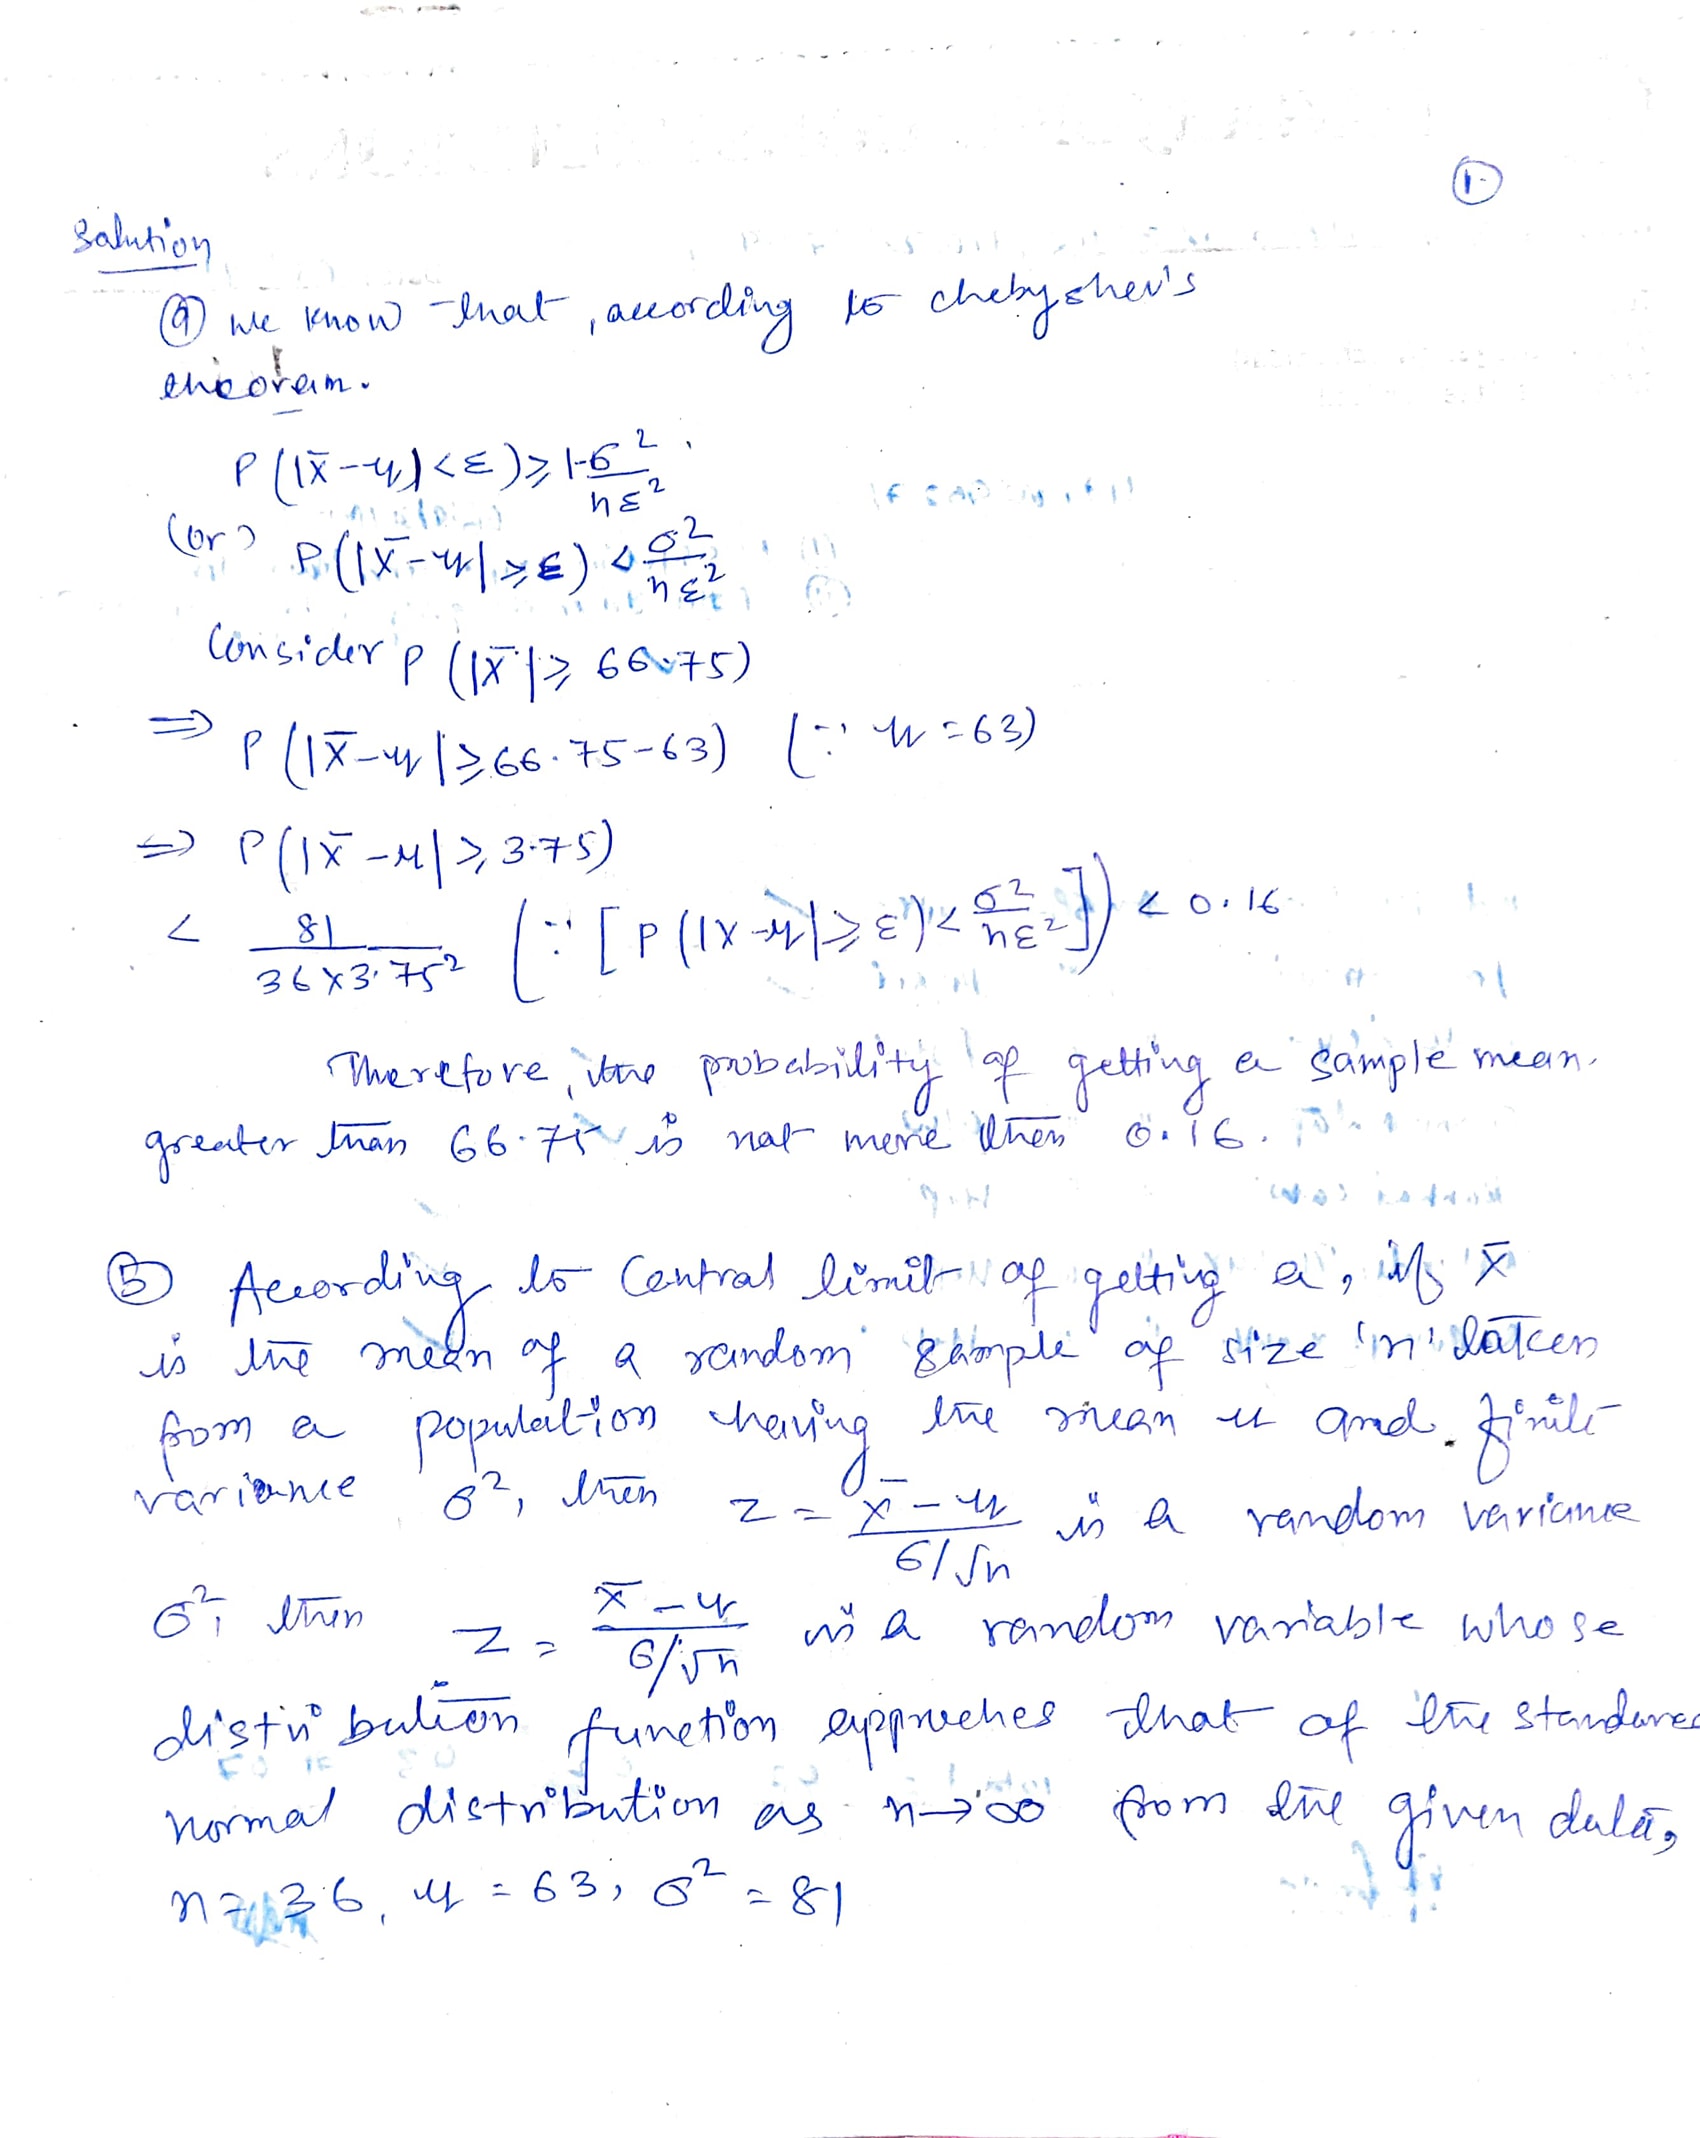 1.
Solution
(a) we know that, according to chebyshev's
theoram.
P(|x̄-μ|<ε)≥1-σ²/nε²
(or) P(|x̄-μ|≥ε)<σ²/nε²
Consider P(|x̄|≥66.75)
⇒ P(|x̄-μ|≥66.75-63) (∵ μ=63)
⇒ P(|x̄-μ|≥3.75)
< 81/36×3.75² (∵[P(|x-μ|≥ε)<σ²/nε²]) < 0.16
Therefore, the probability of getting a sample mean.
greater than 66.75 is not more then 0.16.
(b) According to Central limit of getting a, if x̄
is the mean of a random sample of size 'n' taken
from a population having the mean μ and finite
variance σ², then z = x̄-μ/σ/√n is a random variance
σ², then z = x̄-μ/σ/√n is a random variable whose
distribution function approches that of the standared
normal distribution as n→∞ from the given data,
n=36, μ=63, σ²=81